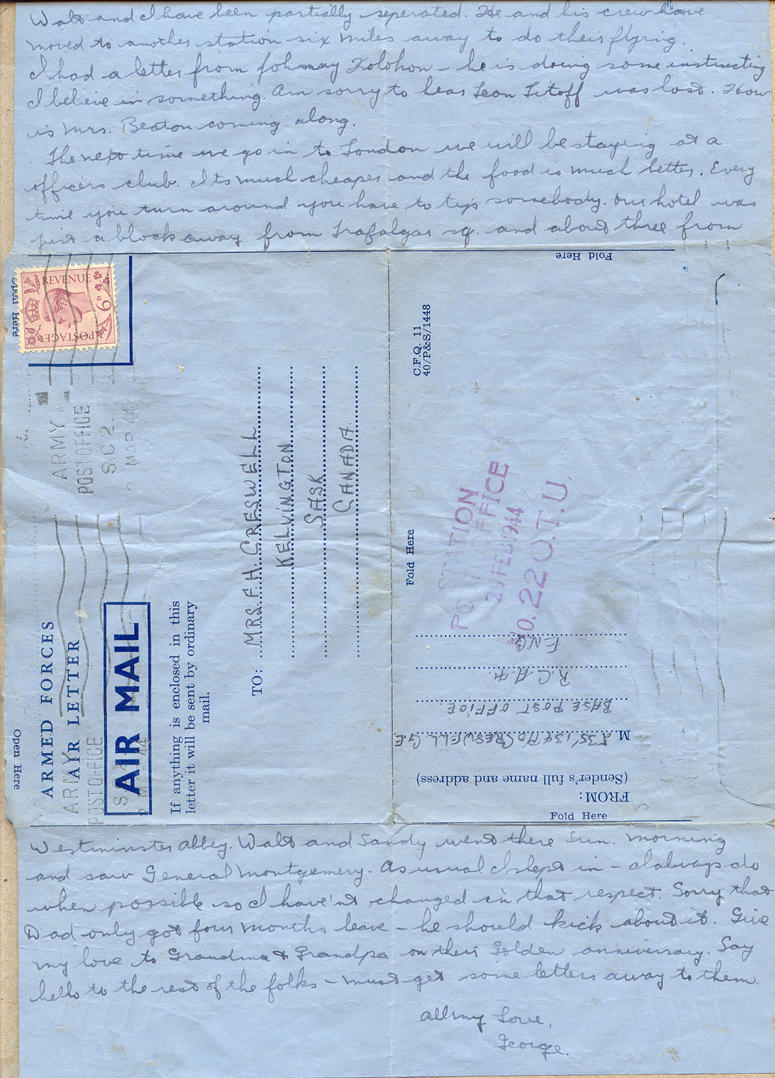 Walt and I have been partially seperated. He and his crew have
moved to another station six miles away to do their flying.
I had a letter from Johnnay Holohon - he is doing some instructing
I believe in something. Am sorry to hear Leon Titoff was lost. How
is Mrs. Beaton coming along.
The next time we go in to London we will be staying at a
officers club. Its much cheaper and the food is much better. Every
time you turn around you have to tip somebody. Our hotel was
just a block away from Trafalgar sq. and about three from
Fold Here
Open Here
REVENUE
6D
POSTAGE
ARMY
POST OFFICE
S.C.2.
2 MAR 44
ARMED FORCES
AIR LETTER
AIR MAIL
ARMY
POST OFFICE
Open Here
If anything is enclosed in this
letter it will be sent by ordinary
mail.
TO: MRS. F.H. CRESWELL
KELVINGTON
SASK
CANADA
C.F.Q. 11
40/P&S/1448
Fold Here
STATION
POST OFFICE
29 FEB 1944
NO. 22 O.T.U.
FROM:
(Sender's full name and address)
CRESWELL G.E.
BASE POST OFFICE
ENG
Fold Here
Westminster abbey. Walt and Sandy went there Sun. morning
and saw General Montgomery. As usual I slept in - I always do
when possible so I haven't changed in that respect. Sorry that
Dad only got four months leave - he should kick about it. Give
my love to Grandma & Grandpa on their Golden anniversary. Say
hello to the rest of the folks - must get some letters away to them.
All my Love,
George.